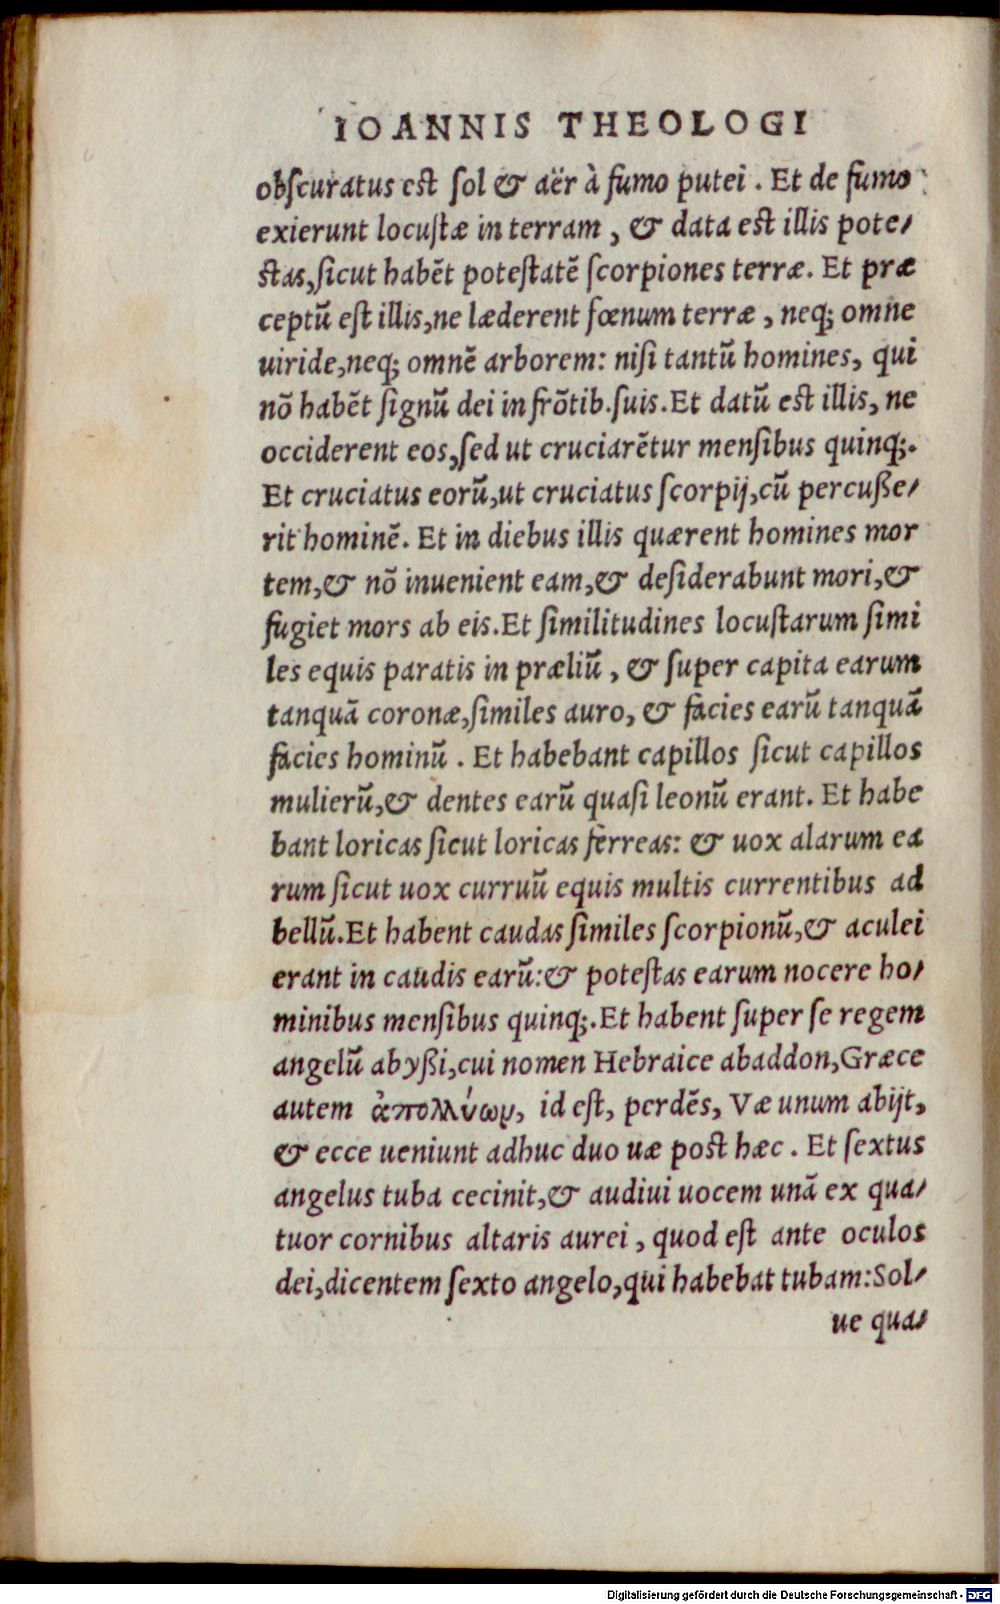 IOANNIS THEOLOGI
obſcuratus eſt ſol & aër à fumo putei. Et de fumo
exierunt locuſtæ in terram, & data eſt illis pote/
ſtas, ſicut habēt poteſtatē ſcorpiones terræ. Et præ
ceptū eſt illis, ne læderent fœnum terræ, neq; omne
uiride, neq; omnē arborem: niſi tantū homines, qui
nō habēt ſignū dei in frōtib. ſuis. Et datū eſt illis, ne
occiderent eos, ſed ut cruciarētur menſibus quinq;.
Et cruciatus eorū, ut cruciatus ſcorpij, cū percuße/
rit hominē. Et in diebus illis quærent homines mor
tem, & nō inuenient eam, & deſiderabunt mori, &
fugiet mors ab eis. Et ſimilitudines locuſtarum ſimi
les equis paratis in præliū, & ſuper capita earum
tanquā coronæ, ſimiles auro, & facies earū tanquā
facies hominū. Et habebant capillos ſicut capillos
mulierū, & dentes earū quaſi leonū erant. Et habe
bant loricas ſicut loricas ferreas: & uox alarum ea
rum ſicut uox curruū equis multis currentibus ad
bellū. Et habent caudas ſimiles ſcorpionū, & aculei
erant in caudis earū: & poteſtas earum nocere ho/
minibus menſibus quinq;. Et habent ſuper ſe regem
angelū abyßi, cui nomen Hebraice abaddon, Græce
autem ἀπολλύωμ, id eſt, perdēs, Væ unum abijt,
& ecce ueniunt adhuc duo uæ poſt hæc. Et ſextus
angelus tuba cecinit, & audiui uocem unā ex qua/
tuor cornibus altaris aurei, quod eſt ante oculos
dei, dicentem ſexto angelo, qui habebat tubam: Sol/
ue qua/
Digitalisierung gefördert durch die Deutsche Forschungsgemeinschaft - DFG